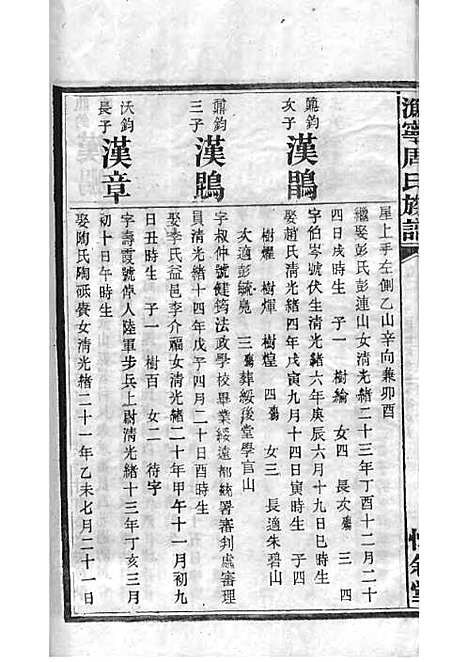 寧周氏族譜
屋上手左側乙山辛向兼卯酉
繼娶彭氏彭連山女清光緒二十三年丁酉十二月二十
四日戌時生 子一 樹綸 女四 長次殤 三 四
鼐鈞
次子
漢鵑
字伯岑號伏生清光緒六年庚辰六月十九日巳時生
娶趙氏清光緒四年戊寅九月十四日寅時生 子四
樹燿 樹煇 樹煌 四殤 女三 長適朱碧山
次適彭毓堯 三殤葬綏後堂學官山
鼐鈞
三子
漢鵰
字叔仲號健筠法政學校畢業綏遠都統署審判處審理
員清光緒十四年戊子四月二十日酉時生
娶李氏益邑李介福女清光緒二十年甲午十一月初九
日丑時生 子一 樹百 女二 待字
沃鈞
長子
漢章
字壽霞號倬人陸軍步兵上尉清光緒十三年丁亥三月
初十日午時生
娶陶氏陶砥賡女清光緒二十一年乙未七月二十一日